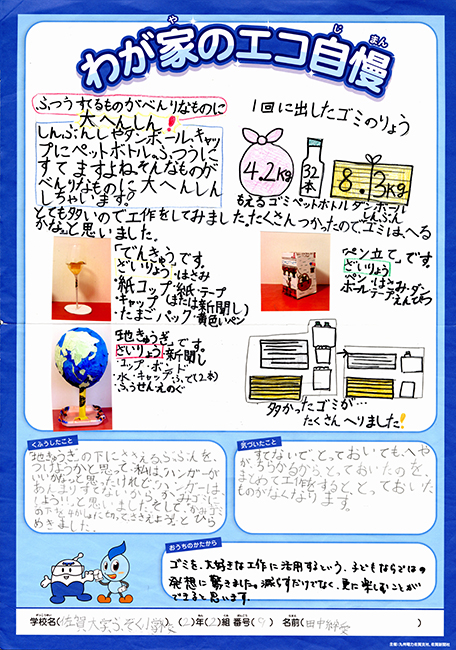 わが家のエコ自慢
や
じ まん
ふつうすてるものがべんりなものに
大へんしん！
しんぶんしやダンボール、キャッ
プにペットボトル。ふつうに
すてますよね。そんなものが
べんりなものに大へんしん
しちゃいます。
1回に出したゴミのりょう
4.2kg
32本
8.3kg
もえるゴミ ペットボトル ダンボール
しんぶん
とても多いので工作をしてみました。たくさんつかったので、ゴミはへる
かなぁと思いました。
「でんきゅう」です。
ざいりょう・はさみ
・紙コップ・紙・テープ
・キャップ(または新聞し)
・たまごパック・黄色いペン
「ペン立て」です。
ざいりょう
ペン・はさみ・ダン
ボール・テープ・
えんぴつ
「地きゅうぎ」です。
ざいりょう 新聞し
・コップ・ボード
・水・キャップ・ふで(2本)
・ふうせん・えのぐ
多かったゴミが…
たくさんへりました！
くふうしたこと
「地きゅうぎ」の下にささえるぶぶんを、
つけようかと思って、私は、ハンガーが
いいかなと思ったけれど、ハンガーは、
あんまりすてないから、かみコップに
しようと思いました。そして、かみコップ
の下を少しはさみで切って、ささえようとひら
めきました。
気づいたこと
すてないで、とっておいても、へや
が、ちらかるから、とっておいたのを、
まとめて工作をすると、とっておいた
ものがなくなります。
おうちのかたから
ゴミを、大好きな工作に活用するという、子どもならではの
発想に驚きました。減らすだけでなく、更に楽しむことが
できると思います。
学校名(佐賀大学ふぞく小学校)(2)年(2)組 番号(9) 名前(田中)
主催:九州電力佐賀支社、佐賀新聞社